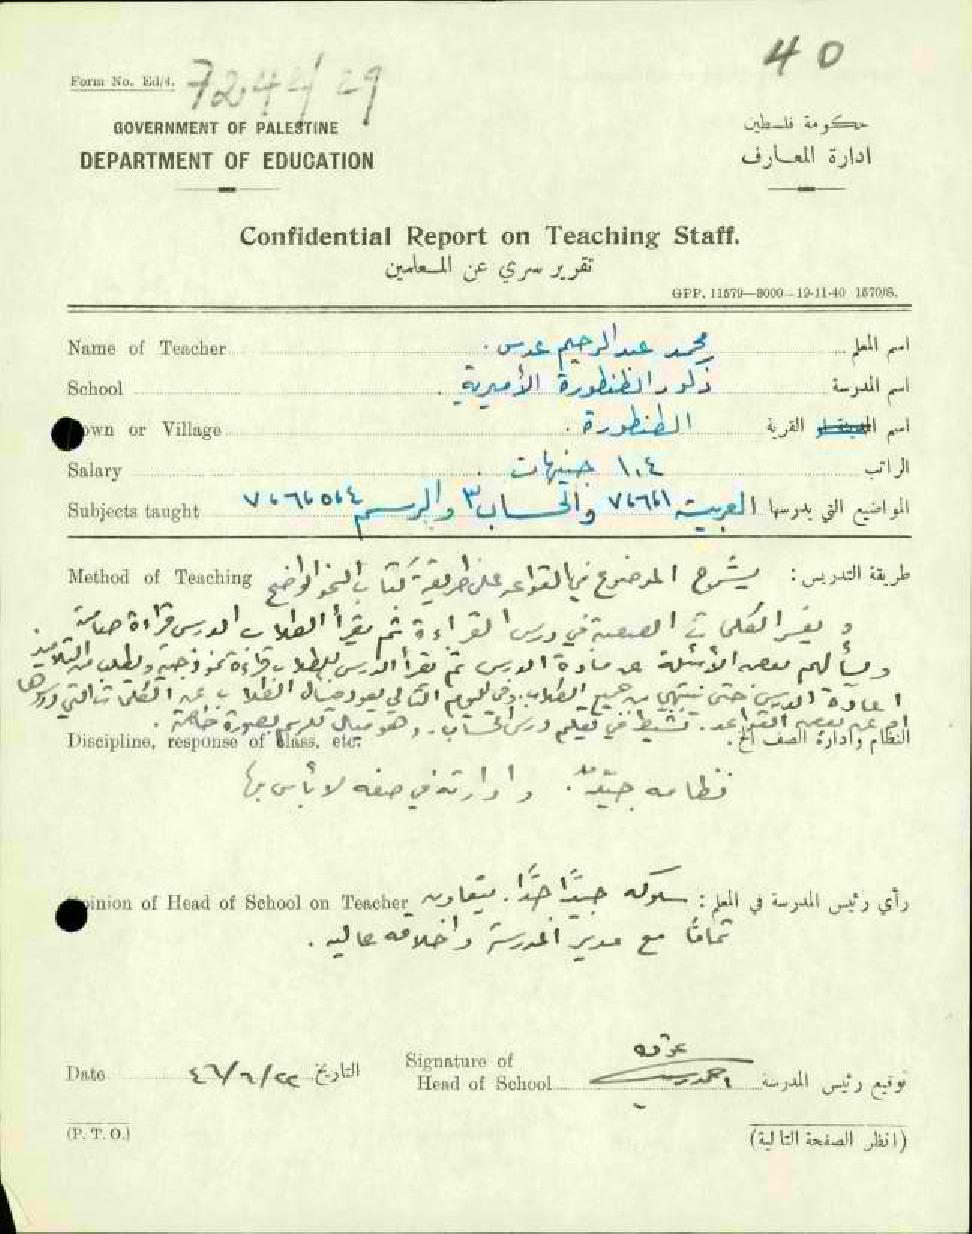 40
Form No. Ed/4.
7244/29
GOVERNMENT OF PALESTINE
حكومة فلسطين
DEPARTMENT OF EDUCATION
ادارة المعارف
Confidential Report on Teaching Staff.
تقرير سري عن المعلمين
GPP. 11579—3000—19-11-40 1570/S.
Name of Teacher محمد عبد الرحيم عدس . اسم المعلم
School ذكور الطنطورة الأميرية . اسم المدرسة
Town or Village الطنطورة . اسم القرية
Salary ١٠٤ جنيهات . الراتب
Subjects taught المواضيع التي يدرسها العربية والحساب ٣ والرسم
Method of Teaching طريقة التدريس : يشرح الموضوع في القواعد على طريقة كتاب النحو الواضح
و يفسر الكلمات الصعبة في درس القراءة ثم يقرأ الطلاب الدرس قراءة صامتة
ويسألهم بعض الأسئلة عن مادة الدرس ثم يقرأ الدرس للطلاب قراءة نموذجية ويطلب من التلاميذ
اعادة الدرس حتى ينتهي من جميع الطلاب وفي اليوم التالي يعود الطلاب عن الكلمات التي
او عن بعض القواعد . نشيط في تعليم درس الحساب . وهو ميال للرسم بصورة خاصة .
Discipline, response of class, etc. النظام وادارة الصف الخ.
نظامه جيد . وادارته في صفه لا بأس بها
Opinion of Head of School on Teacher رأي رئيس المدرسة في المعلم : سلوكه جيد جدًا . يتعاون
تمامًا مع مدير المدرسة واخلاقه عاليه .
Date ٤٦/٦/٢٢ التاريخ Signature of
Head of School توقيع رئيس المدرسة
(P. T. O.) (انظر الصفحة التالية)